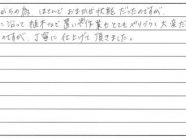 からの為 ほとんど おまかせ状態 だったのですが、
に沿って 植木など 置い 作業も とても 大変だ
のですが、丁寧に 仕上げて 頂きました。